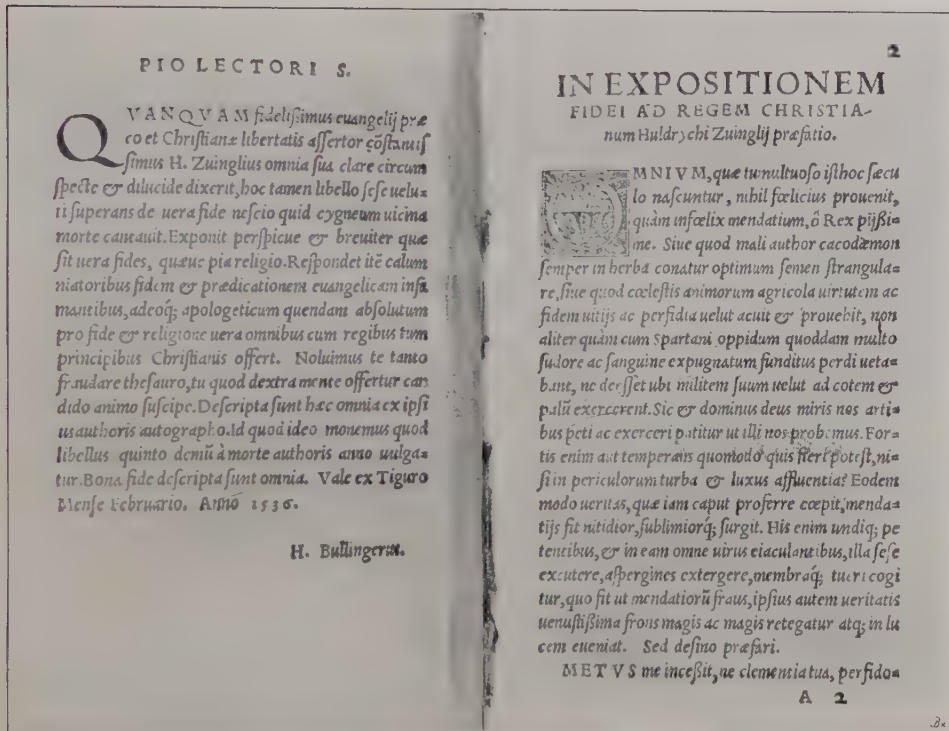 PIO LECTORI S.
QVANQVAM fidelißimus euangelij præ
co et Christianæ libertatis assertor cōstantis
simus H. Zuinglius omnia sua clare circum
specte & dilucide dixerit, hoc tamen libello sese uelu=
ti superans de uera fide nescio quid cygneum uicina
morte cantauit. Exponit perspicue & breuiter quæ
sit uera fides, quæue pia religio. Respondet itē calum
niatoribus fidem & prædicationem euangelicam infa
mantibus, adeoq; apologeticum quendam absolutum
pro fide & religione uera omnibus cum regibus tum
principibus Christianis offert. Noluimus te tanto
fraudare thesauro, tu quod dextra mente offertur can
dido animo suscipe. Descripta sunt hæc omnia ex ipsi
us authoris autographo. Id quod ideo monemus quod
libellus quinto demū à morte authoris anno uulga=
tur. Bona fide descripta sunt omnia. Vale ex Tiguro
Mense Februario. Anno 1536.
H. Bullingerus.
2
IN EXPOSITIONEM
FIDEI AD REGEM CHRISTIA-
num Huldrychi Zuinglij præfatio.
OMNIVM, quæ tumultuoso isthoc sæcu
lo nascuntur, nihil fœlicius prouenit,
quàm infœlix mendatium, ô Rex pijßi=
me. Siue quod mali author cacodæmon
semper in herba conatur optimum semen strangula=
re, siue quod cœlestis animorum agricola uirtutem ac
fidem uitijs ac perfidia uelut acuit & prouehit, non
aliter quàm cum Spartani oppidum quoddam multo
sudore ac sanguine expugnatum funditus perdi ueta=
bant, ne deesset ubi militem suum uelut ad cotem &
palū exercerent. Sic & dominus deus miris nos arti=
bus peti ac exerceri patitur ut illi nos probemus. For=
tis enim aut temperans quomodo quis fieri potest, ni=
si in periculorum turba & luxus affluentia? Eodem
modo ueritas, quæ iam caput proferre cœpit, menda=
tijs fit nitidior, sublimiorq; surgit. His enim undiq; pe
tentibus, & in eam omne uirus eiaculantibus, illa sese
excutere, aspergines extergere, membraq; tueri cogi
tur, quo fit ut mendatiorū fraus, ipsius autem ueritatis
uenustißima frons magis ac magis retegatur atq; in lu
cem eueniat. Sed desino præfari.
METVS me inceßit, ne clementia tua, perfido=
A 2